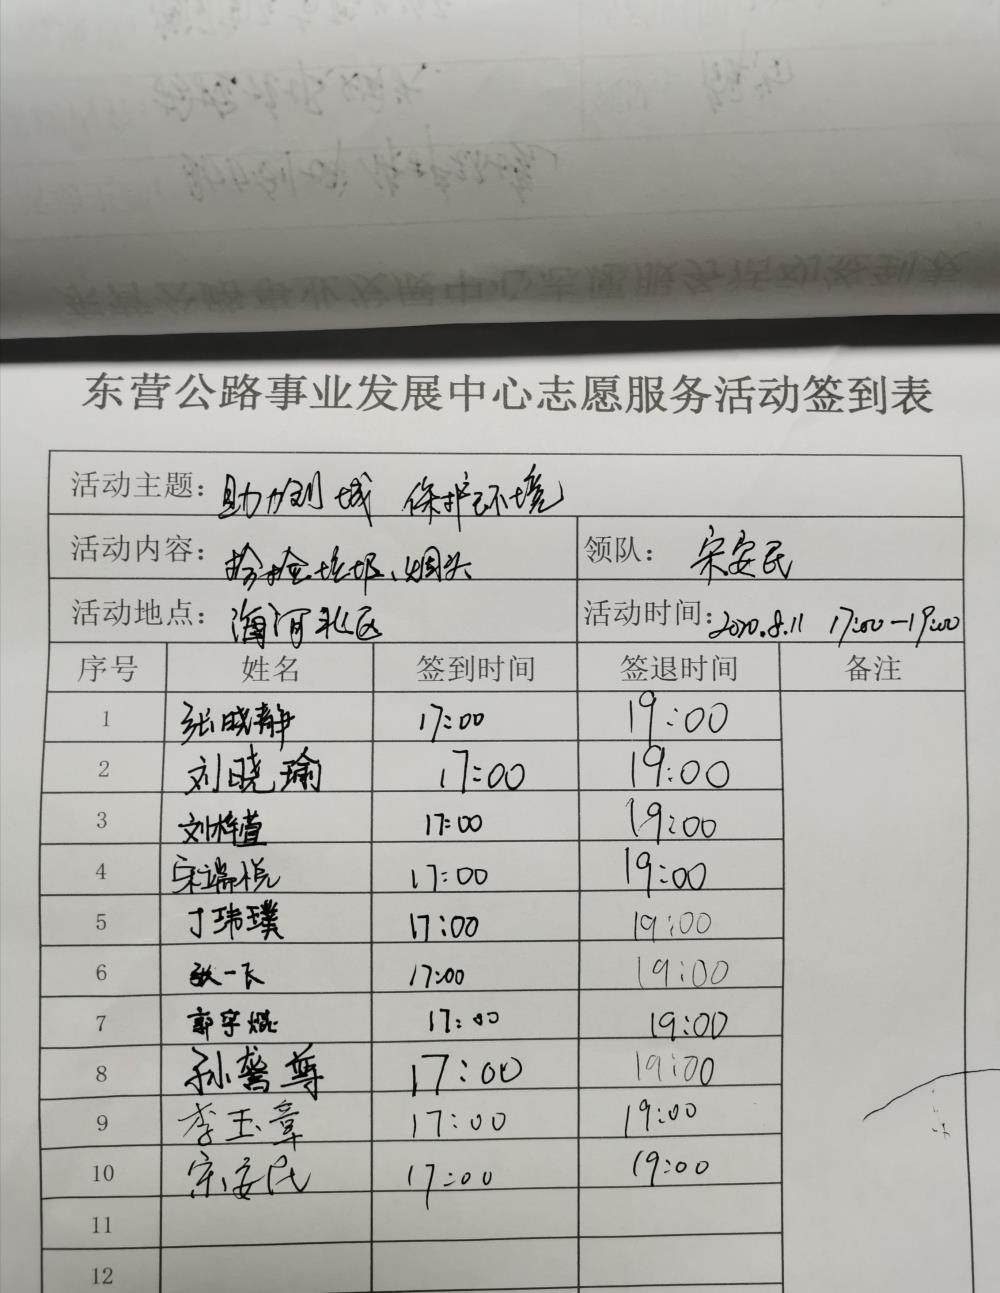 东营公路事业发展中心志愿服务活动签到表
活动主题：助力创城 保护环境
活动内容：捡拾垃圾、烟头 领队：宋安民
活动地点：海河北区 活动时间：2020.8.11 17:00—19:00
序号 姓名 签到时间 签退时间 备注
1 张晓静 17:00 19:00
2 刘晓瑜 17:00 19:00
3 刘梓萱 17:00 19:00
4 宋端悦 17:00 19:00
5 丁玮璞 17:00 19:00
6 张一飞 17:00 19:00
7 郭宇焜 17:00 19:00
8 孙誉尊 17:00 19:00
9 李玉章 17:00 19:00
10 宋安民 17:00 19:00
11
12